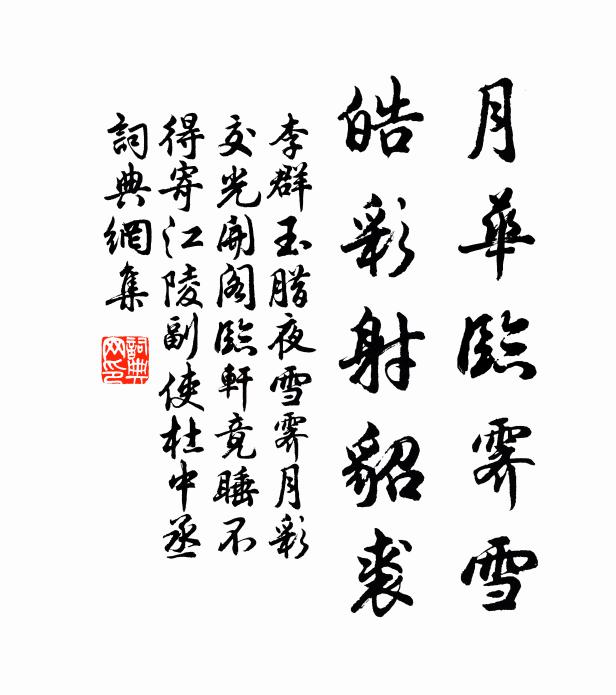 月華臨霽雪
皓彩射貂裘
李群玉腊夜雪霽月彩
交光開閣臨軒竟睡不
得寄江陵副使杜中丞
詞典網集
詞典
网印